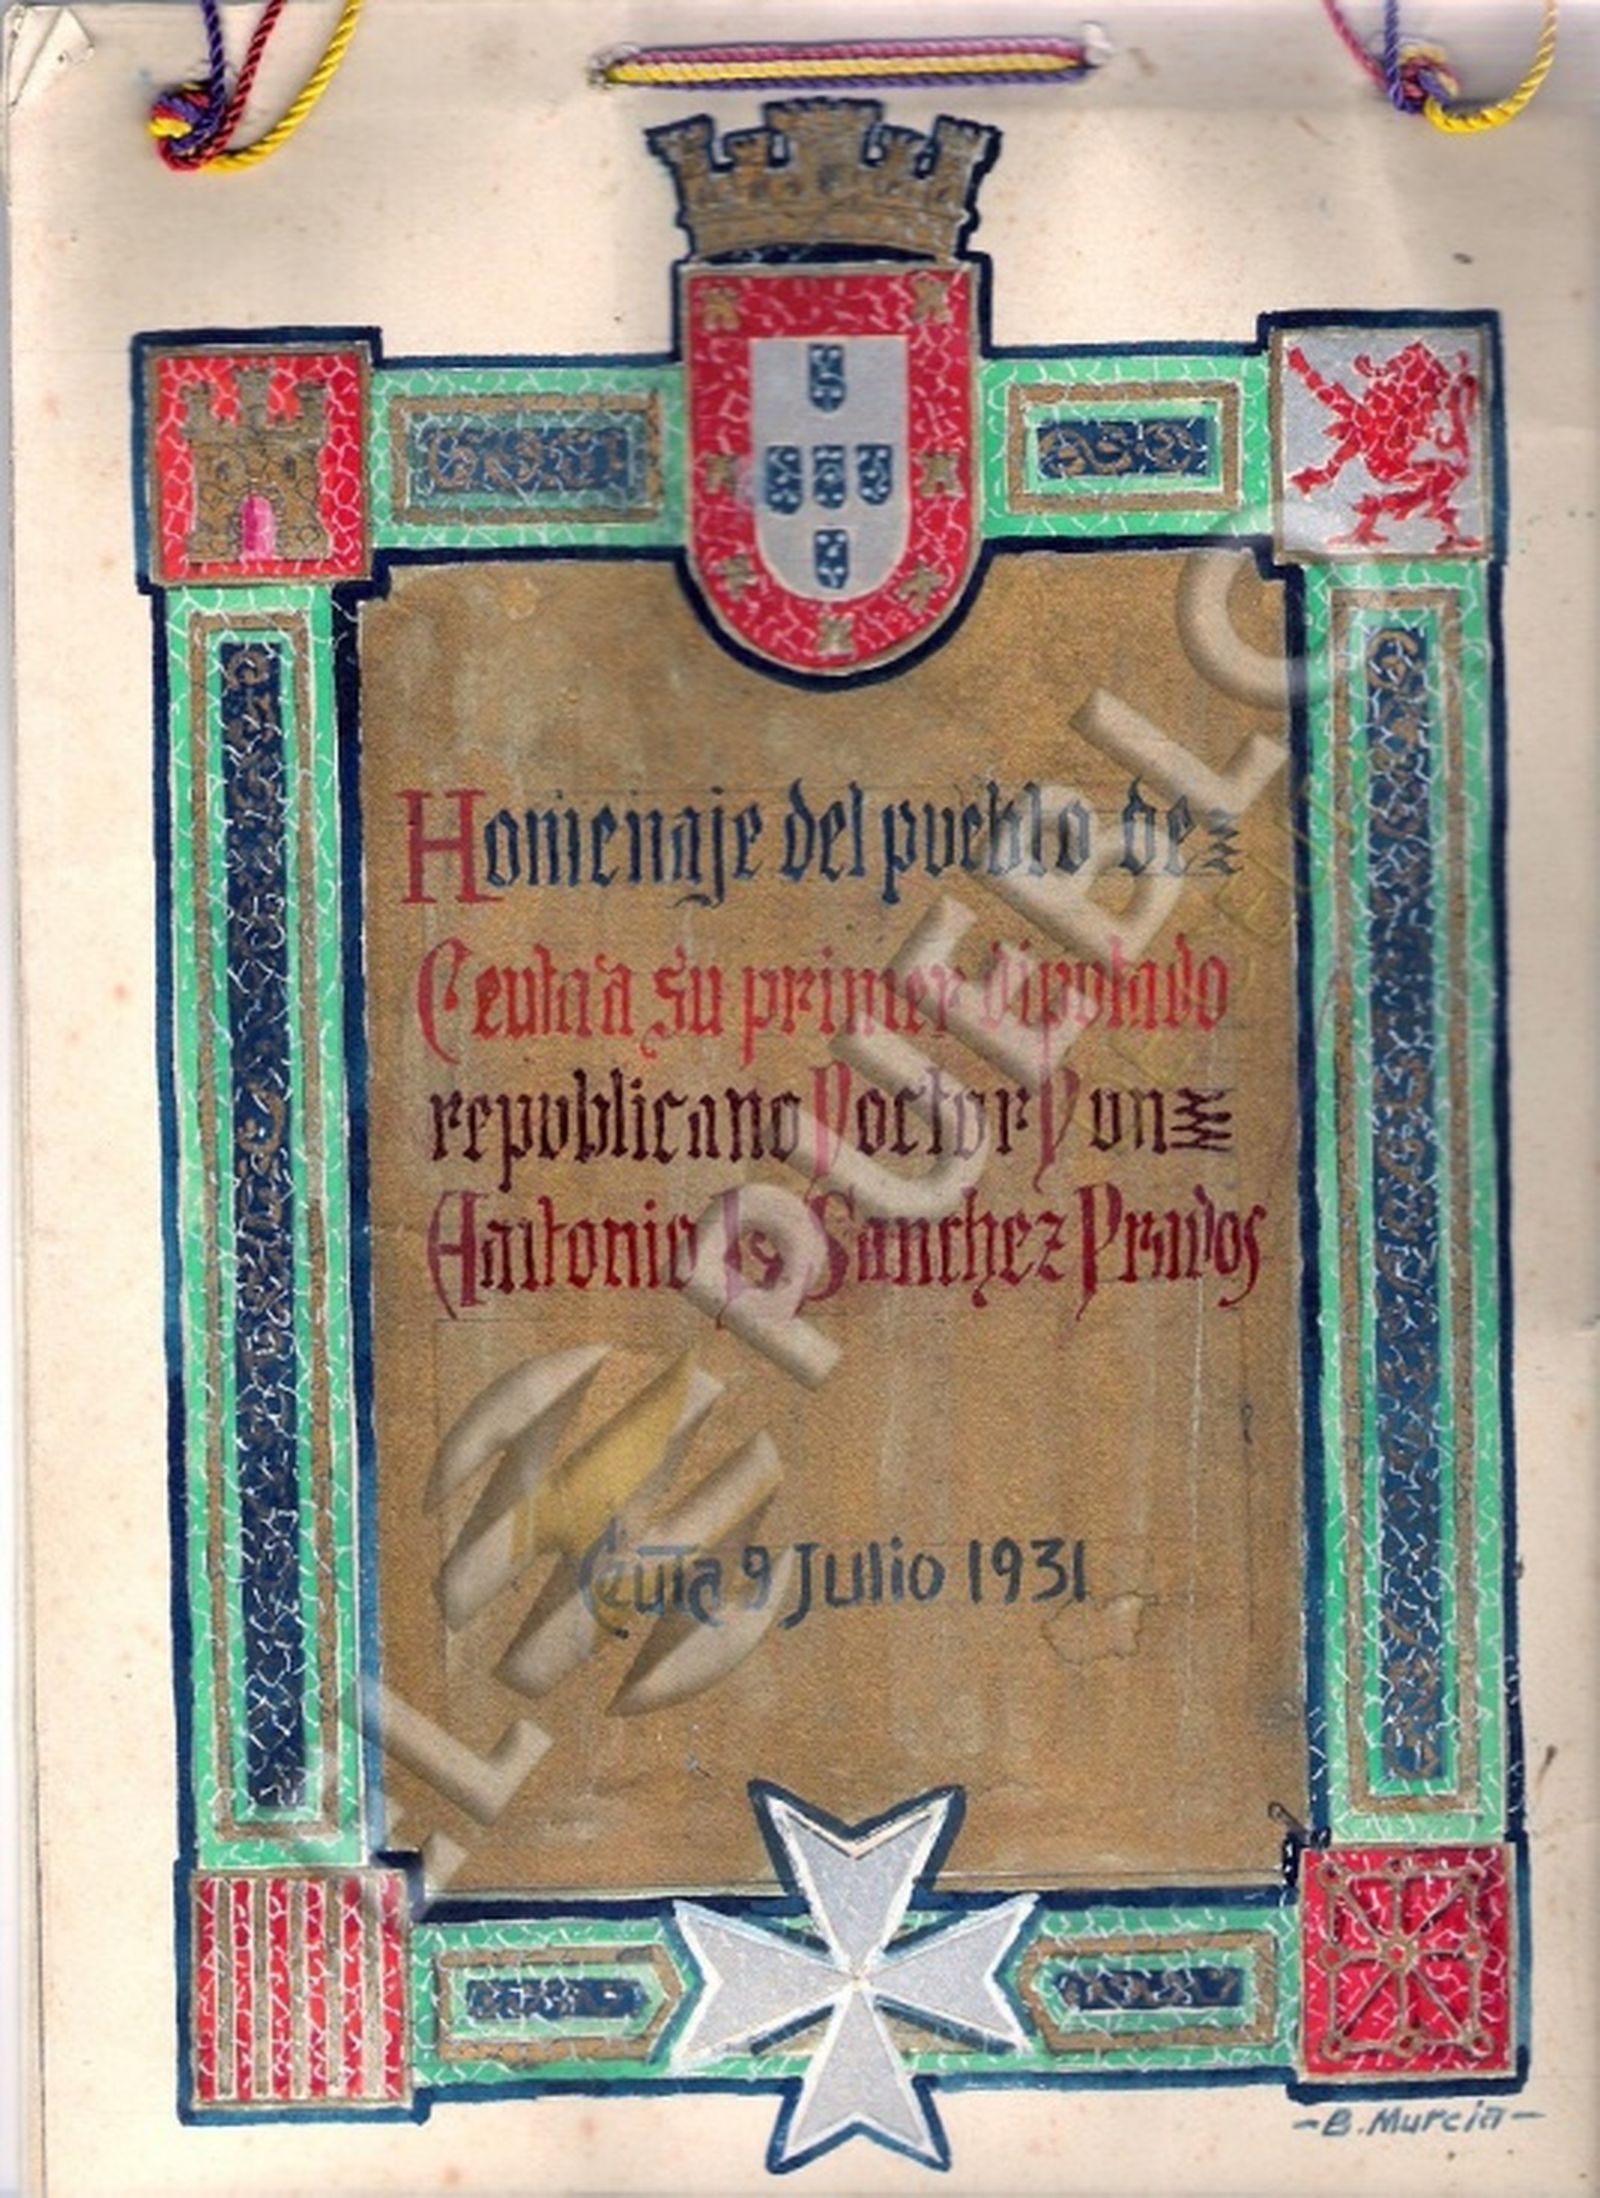 Homenaje del pueblo de
Ceuta a su primer diputado
republicano Doctor Don
Antonio L. Sanchez Prados
Ceuta 9 Julio 1931
EL PUEBLO
-B. Murcia-